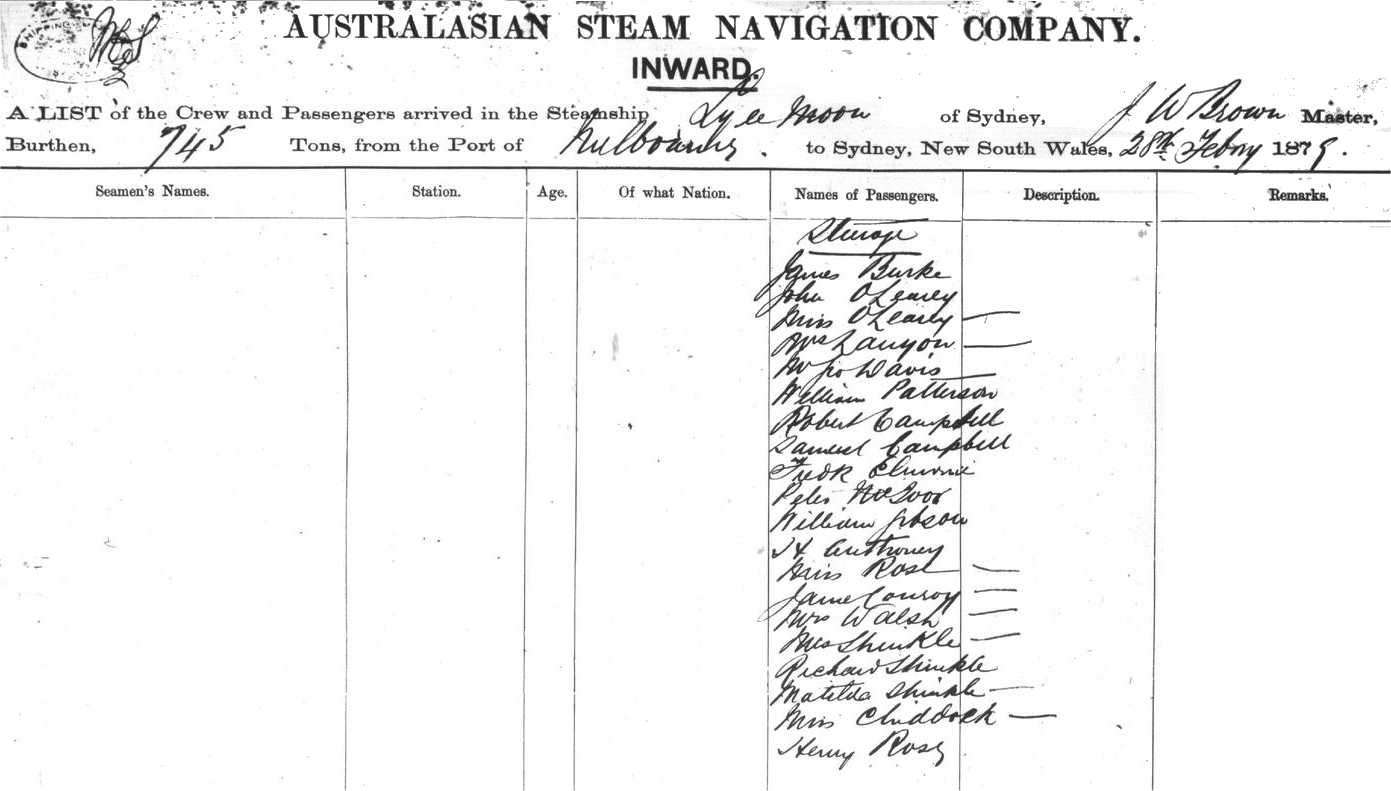 AUSTRALASIAN STEAM NAVIGATION COMPANY.
INWARD.
A LIST of the Crew and Passengers arrived in the Steamship Lyee Moon of Sydney, J W Brown Master,
Burthen, 745 Tons, from the Port of Melbourne. to Sydney, New South Wales, 28th Febry 1879.
Seamen's Names. Station. Age. Of what Nation. Names of Passengers. Description. Remarks.
Steerage
James Burke
John O'Learey
Miss O'Learey
Mrs Lanyon
Davis
William Patterson
Robert Campbell
Samuel Campbell
Fredk
Peter
William Gibson
H Anthoney
Miss Rose
Jane Conroy
Mrs Walsh
Mrs Shinkle
Richard Shinkle
Matilda Shinkle
Miss Chiddock
Henry Rose